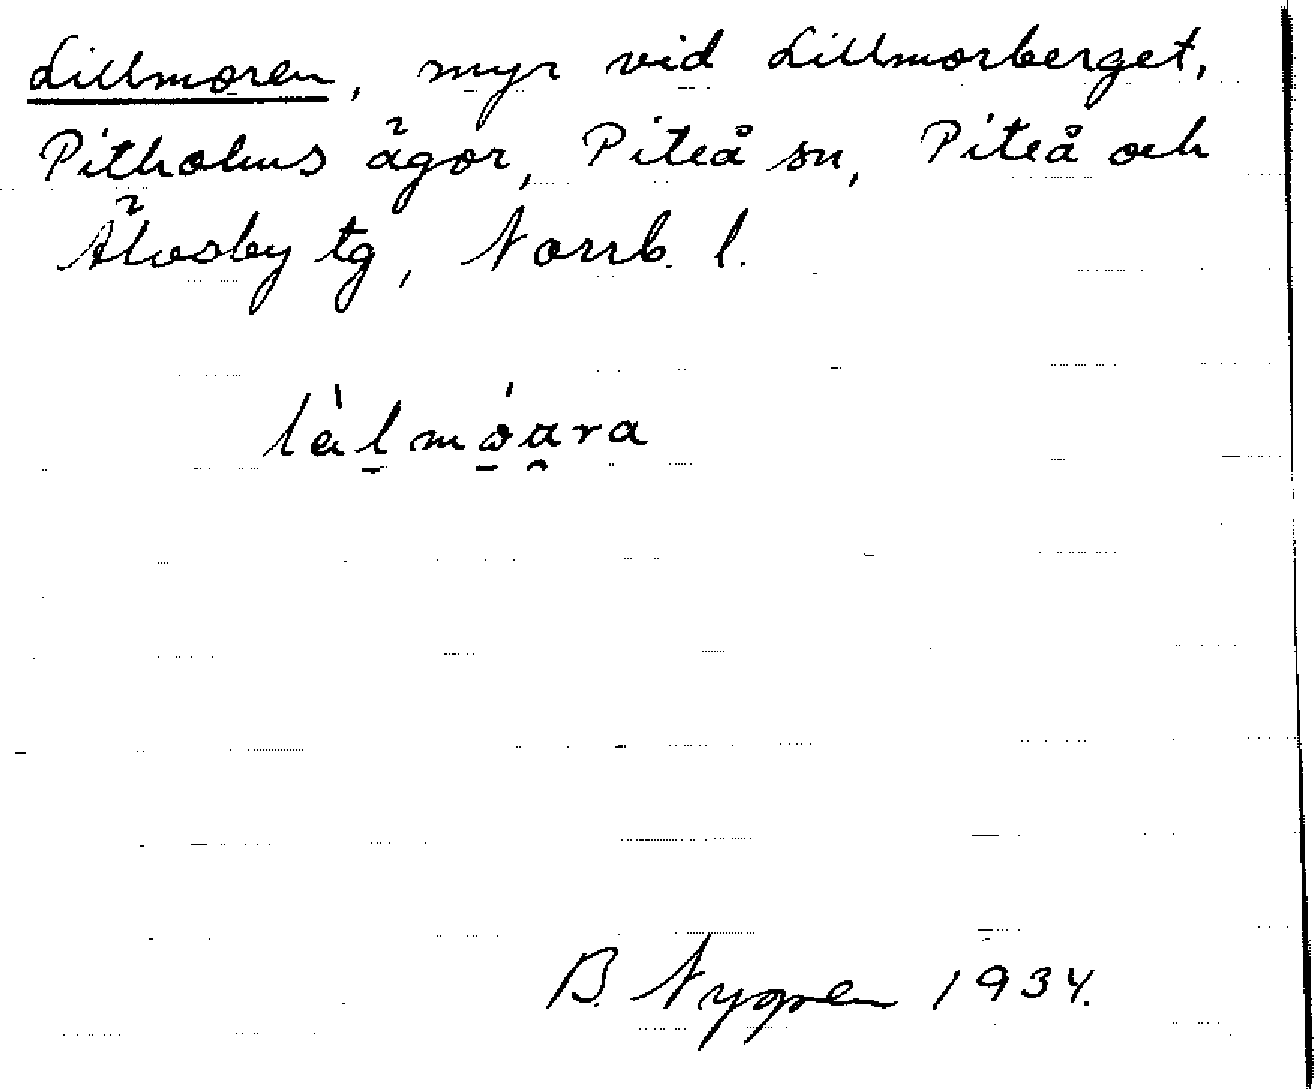 Lillmoren, myr vid Lillmorberget,
Pitholms ägor, Piteå sn, Piteå och
Älvsby tg, Norrb. l.
lèl̠mó̠a̯ra
B. Nygren 1934.